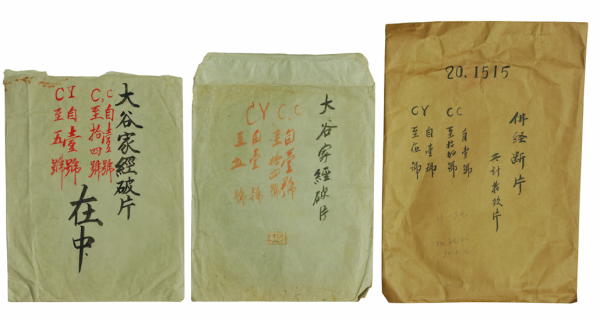 大谷家經破片
在中
C,C
自壹號
至拾四號
CI
自壹號
至五號
大谷家經破片
C.C
自壹號
至拾四號
CY
自壹號
至五號
20.1515
佛经断片
共计片
CC
自壹號
至拾四號
CY
自壹號
至伍號